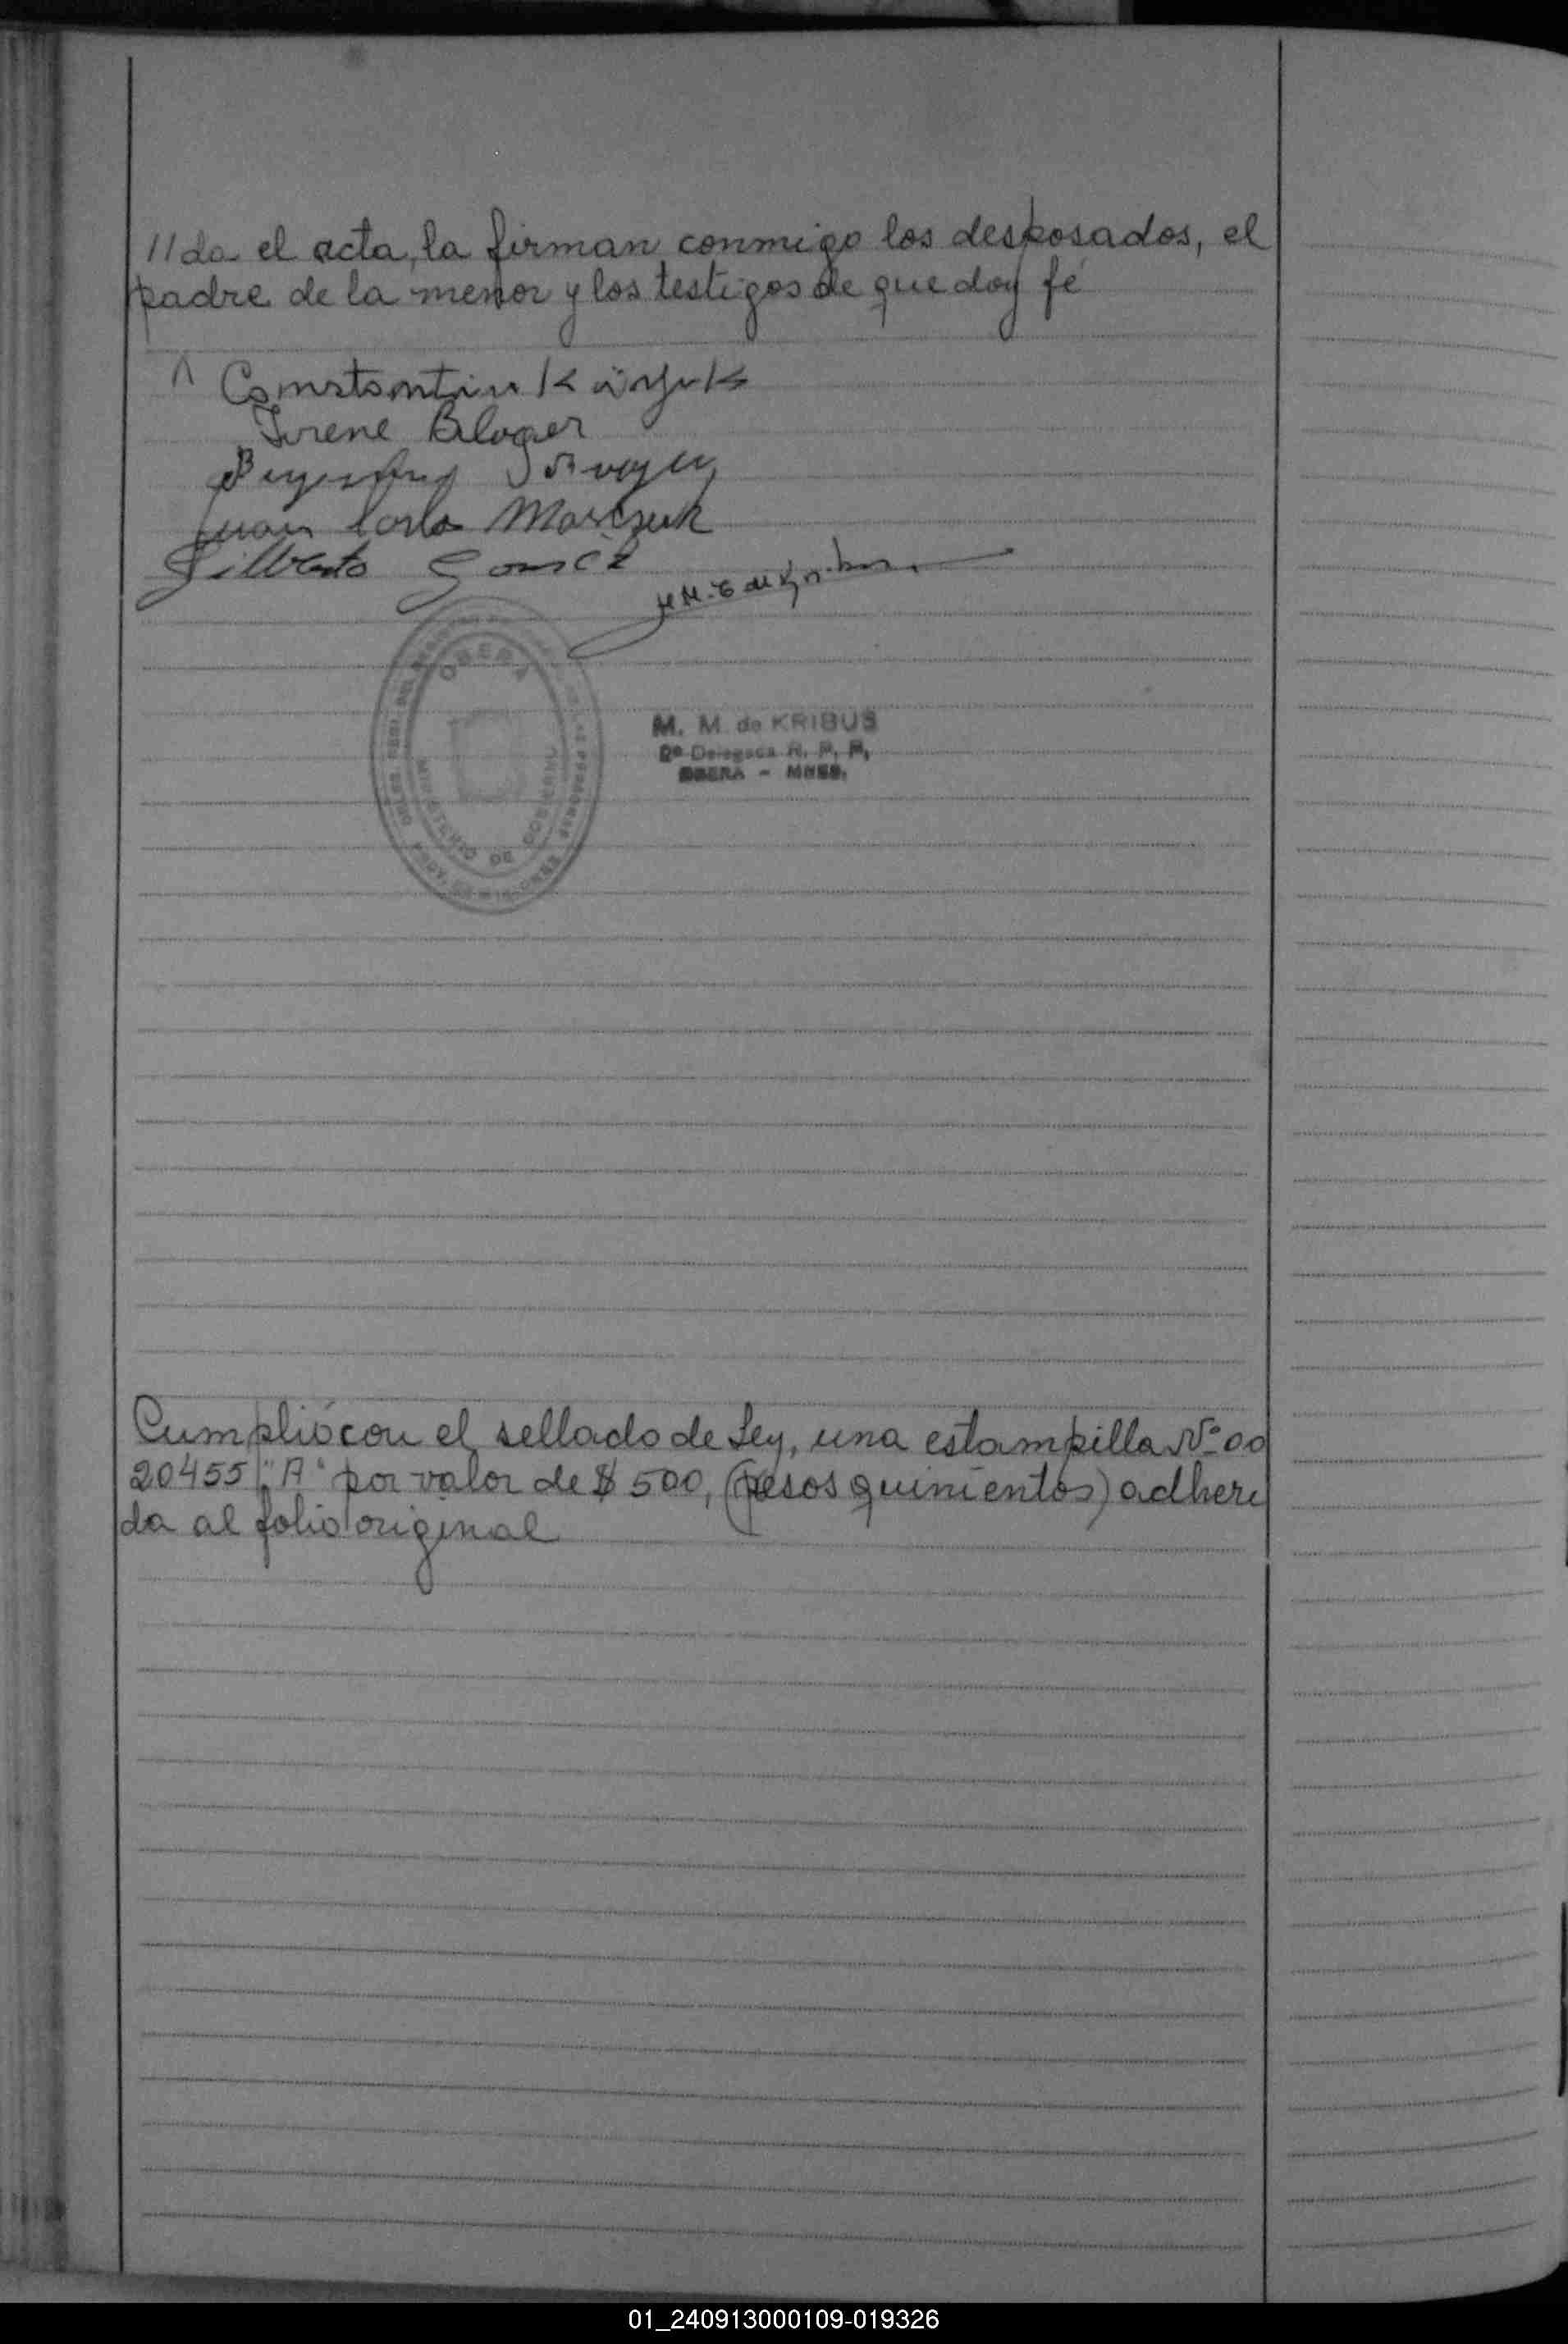 //da el acta, la firman conmigo los desposados, el
padre de la menor y los testigos de que doy fé
Constantin
Irene
Juan Carlos Marczuk
Gilberto Gomez
OBERA
MINISTERIO DE GOBIERNO
M. M. de KRIBUS
Delegada R. P. P.
OBERA - MNES.
Cumplió con el sellado de Ley, una estampilla Nº 00
20455 "A" por valor de $ 500, (pesos quinientos) adheri
da al folio original
01_240913000109-019326